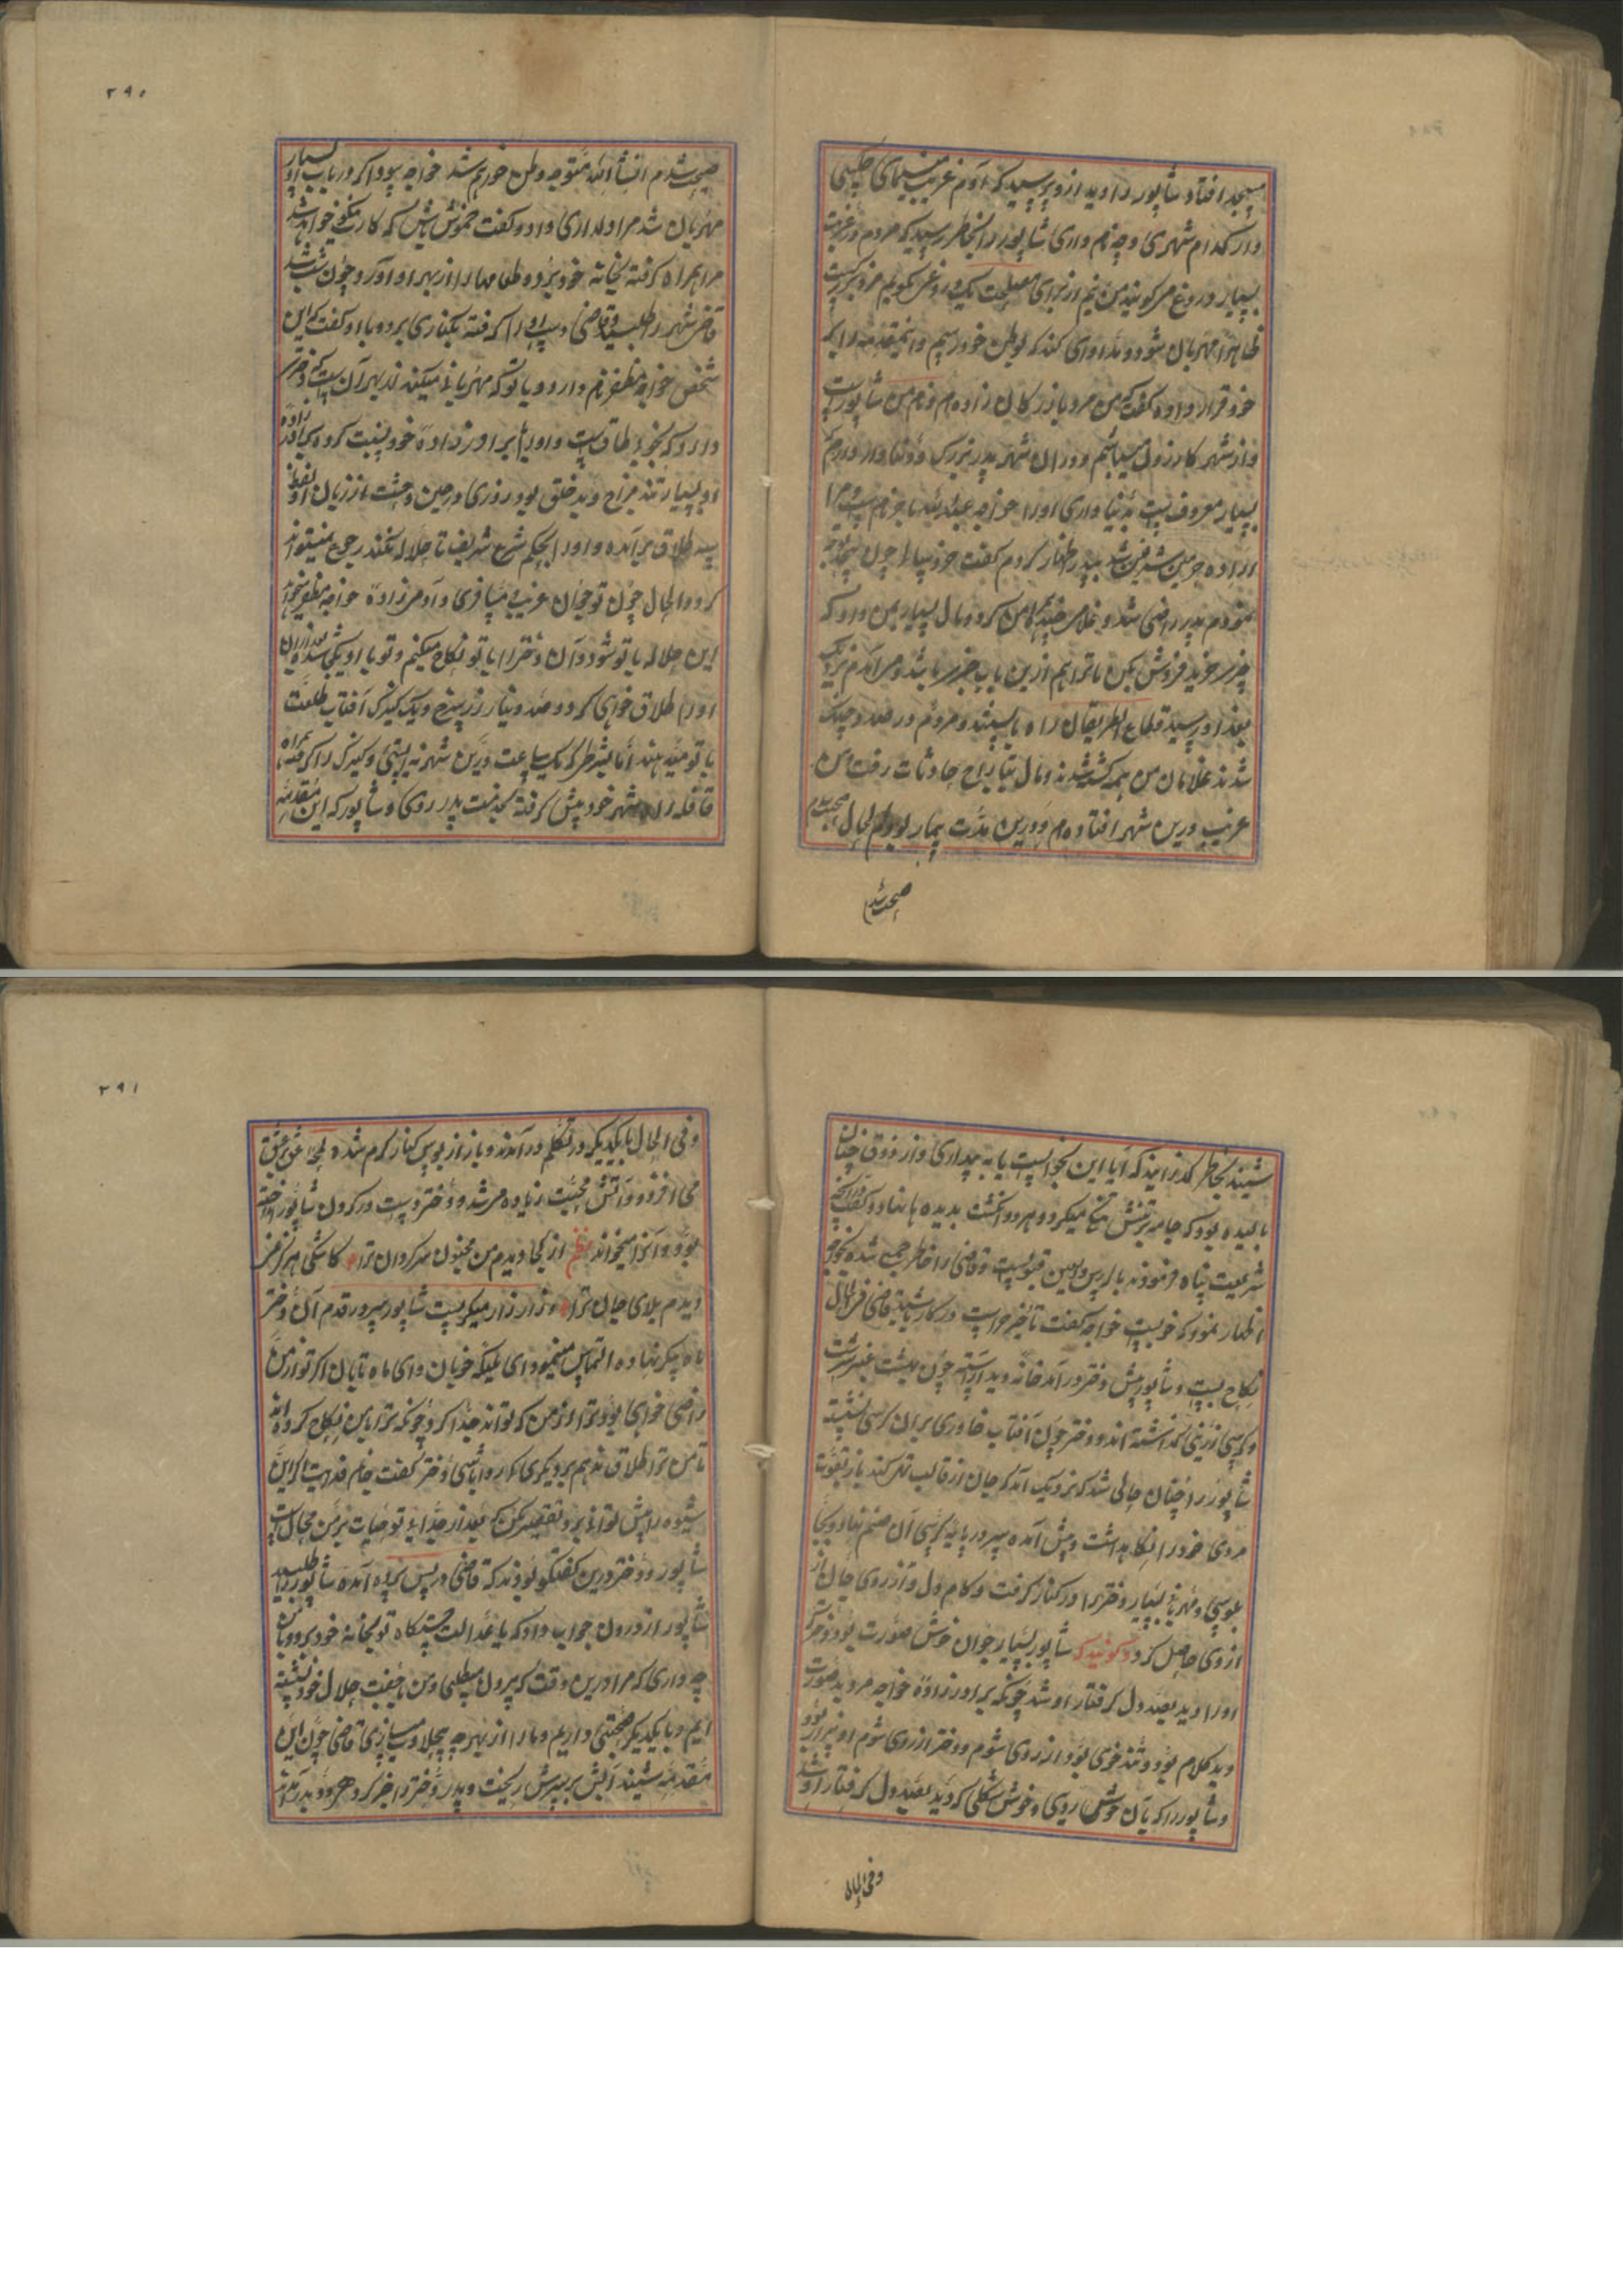 مسجد افتاد شاپور را دید ازو پرسید که ای آدم غریب سیمای چه کسی
و از کدام شهری و چه نام داری شاپور را بخاطر رسید که مردم در غربت
بسیار دروغ میگویند من نیم از برای مصلحت یک دروغی بگویم مرد بزرگیست
ظاهرا مهربان شود و مداوای کند که بوطن خود رسیم و این مقدمه را بکه
خود قرار داده گفت که من مرد بازرگان زاده ام و نام من شاپور است
و از شهر کازرون میباشم و در آن شهر پدر بزرگ و وفادار دارم که
بسیار معروف است بدنیا داری او را خواجه عبدالله تاجر نام است مرا
اراده سفر شد به پدر اظهار کردم گفت خوب باشد چون
نمودم پدر راضی شد و غلامی چند همراه من کرد و مال بسیار بمن داد که
خرید فروش بکن تا ترا هم ازین باب خبر باشد و میآمدم نزدیک
بغداد رسید قطاع الطریقان راه بستند و مردم در صدد جنگ
شدند غلامان من همه کشته شدند و مال بتاراج حادثات رفت من
غریب درین شهر افتاده ام و درین مدت بیمار بودم الحال صحت
صحت شدم
۲۹۰
صحت شدم انشاالله متوجه وطن خودم شد خواجه بود اگر در باب او بسیار
مهربان شد مرا دلداری داد و گفت خموش باش که کار تو نیکو خواهد شد
مرا همراه گرفته بخانه خود برد و طعامها را از بهر او آورد چون شب شد
قاضی شهر را طلبید و قاضی دست او را گرفته بکناری برد و با او گفت که این
شخص خواجه مظفر نام دارد و با تو که مهربانی میکند از بهر آن است که دختری
دارد که بخوبی طاق است و او را با برادر زاده خود نسبت کرده برادر زاده
او بسیار تند مزاج و بد خلق بود روزی در حین وحشت از زبان او لفظ
سه طلاق برآمده و او را بحکم شرع شریف تا حلاله نکند رجوع نمیتواند
کرد و الحال چون تو جوان غریبی مسافری و آدمی زاده خواجه مظفر میخواهد
این حلاله با تو شود و آن دختر را با تو نکاح میکنیم و تو با او یکی شده بعد از آن
او را طلاق خواهی کرد و صد دینار زر سرخ و یک کنیزک آفتاب طلعت
با تو میدهند اما بشرطی که یک ساعت درین شهر نه ایستی و کنیزک را گرفته همراه
قافله راه شهر خود پیش گرفته بخدمت پدر روی و شاپور که این مقدمه
شنید بخاطر گذرانید که آیا این بخواب است یا به بیداری و از ذوق چنان
بالیده بود که جامه بر تنش تنگی میکرد و هر دو انگشت بدیده ها نهاد و گفت آنچه
شریعت پناه فرمودند بالراس والعین قبول است و قاضی را خاطر جمع شده بخواجه
اظهار نمود که خوب است خواجه گفت تاخیر چرا است در کار باشید قاضی فی الحال
نکاح بست و شاپور پیش دختر درآمد خانه دید آراسته چون بهشت عنبر سرشت
و کرسی زرینی گذاشته اند و دختر چون آفتاب خاوری بر آن کرسی نشسته
شاپور را چنان حالی شد که نزدیک آمد که جان از قالب تهی کند باز بقوت
مردی خود را نگاهداشت و پیش آمده سر در پایه کرسی آن صنم نهاد و بجا
بلوسی و مهربانی بسیار دختر را در کنار گرفت و کام دل و آرزوی جان را
از وی حاصل کرد و گویند که شاپور بسیار جوان خوش صورت بود و دختر که
او را دید بصد دل گرفتار او شد چونکه برادر زاده خواجه مرد بد صورت
و بد کلام بود و تند خوی بود از روی شوم و دختر از روی شوم او بیزار بود
و شاپور را که بآن خوش روی و خوش شکلی که دید بصد دل گرفتار او شد
وفی الحال
۲۹۱
وفی الحال با یکدیگر در تکلم درآمدند و باز از بوس کنار گرم شده عشق
می افزود و آتش محبت زیاده میشد و دختر دست در گردن شاپور انداخته
بود و او این را میخواند نظم از کجا دیدم من مجنون سرگردان ترا کاشکی هرگز نمی
دیدم بلای جان ترا و زار زار میگریست شاپور سر در قدم آن دختر
ماه پیکر نهاده التماس مینمود ای ملکه خوبان و ای ماه تابان اگر تو از من
راضی خواهی بود ترا از من که تواند جدا کرد چونکه ترا بمن نکاح کرده اند
تا من ترا طلاق ندهم بر دیگری کی روا باشی دختر گفت جانم فدایت اگر این
شیوه را پیش توانی برد تقصیر مکن که بعد از جدائی تو حیات بر من محال است
شاپور و دختر درین گفتگو بودند که قاضی در پس پرده آمده شاپور را طلبید
شاپور از درون جواب داد که یا عدالت دستگاه تو بخانه خود برو با من
چه داری که مرا درین وقت که بیرون میطلبی و من با جفت حلال خود نشسته
ایم و با یکدیگر صحبتی داریم و ما را از بهر چه بیجا میسازی قاضی چون این
مقدمه شنید آتش بر سرش ریخت و پدر دختر را خبر کرد هر دو بدر آمدند